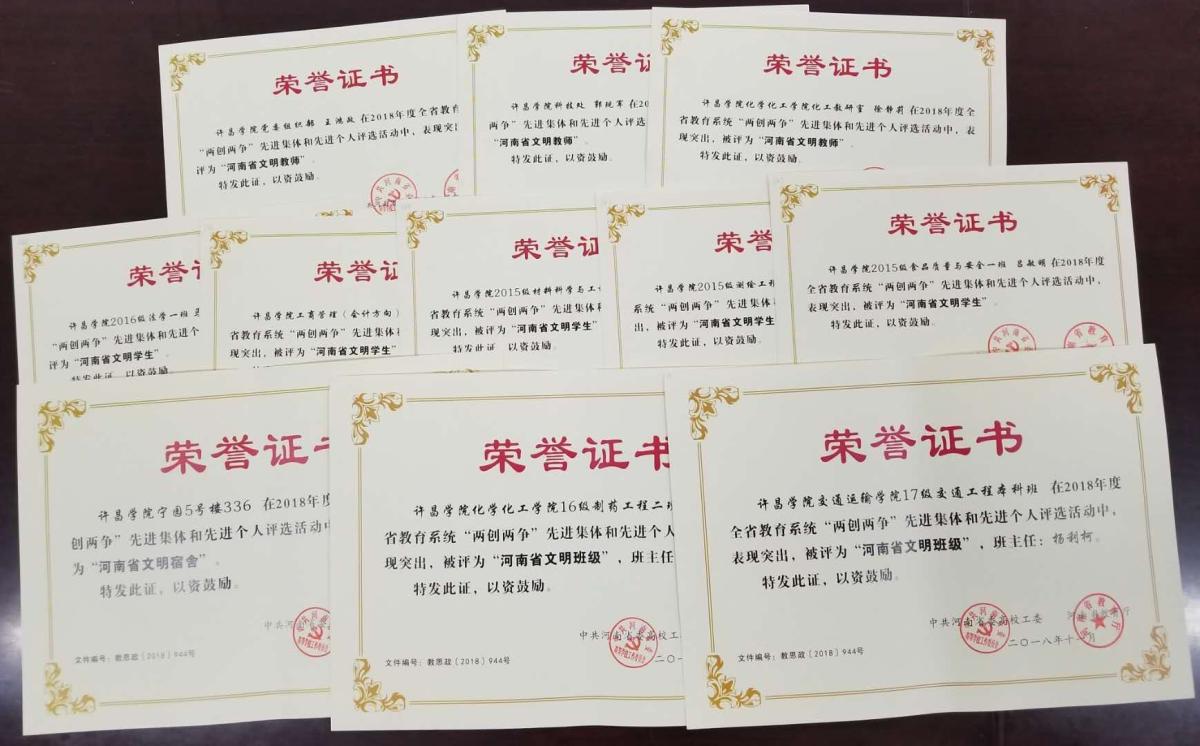 荣誉证书
许昌学院党委组织部 王鸿政 在2018年度全省教育
“两创两争”先进集体和先进个人评选活动中，表现突出
评为“河南省文明教师”。
特发此证，以资鼓励。
荣誉证
许昌学院科技处 郭现军 在20
两争”先进集体和先进个人
“河南省文明教师”。
特发此证，以资鼓励。
荣誉证书
许昌学院化学化工学院化工教研室 徐静莉 在2018年度全
省教育系统“两创两争”先进集体和先进个人评选活动中，表
现突出，被评为“河南省文明教师”。
特发此证，以资鼓励。
荣誉证
许昌学院2016级法学一班
“两创两争”先进个
评为“河南省文明学生”。
特发此证，以资鼓励
荣誉证
许昌学院工商管理（会计方向）
省教育系统“两创两争”先进集体
现突出，被评为“河南省文明学生”
特发此证，以资鼓励。
荣誉证
许昌学院2015级材料科学与工
省教育系统“两创两争”先进集体
现突出，被评为“河南省文明学生”
特发此证，以资鼓励。
荣誉
许昌学院2015级测绘工程
系统“两创两争”先进集体
出，被评为“河南省文明学生
特发此证，以资鼓励。
荣誉证书
许昌学院2015级食品质量与安全一班 吕敏明 在2018年度
全省教育系统“两创两争”先进集体和先进个人评选活动中，
表现突出，被评为“河南省文明学生”。
特发此证，以资鼓励。
荣誉证
许昌学院宁园5号楼336 在2018年度
创两争”先进集体和先进个人评选活动中
为“河南省文明宿舍”。
特发此证，以资鼓励。
中共河南省委
文件编号：教思政〔2018〕944号
荣誉证书
许昌学院化学化工学院16级制药工程二班
省教育系统“两创两争”先进集体和先进个人
现突出，被评为“河南省文明班级”，班主任
特发此证，以资鼓励。
中共河南省委高校工
二〇一
文件编号：教思政〔2018〕944号
荣誉证书
许昌学院交通运输学院17级交通工程本科班 在2018年度
全省教育系统“两创两争”先进集体和先进个人评选活动中，
表现突出，被评为“河南省文明班级”，班主任：杨利柯。
特发此证，以资鼓励。
中共河南省委高校工委 河南省教育厅
二〇一八年十一月
文件编号：教思政〔2018〕944号